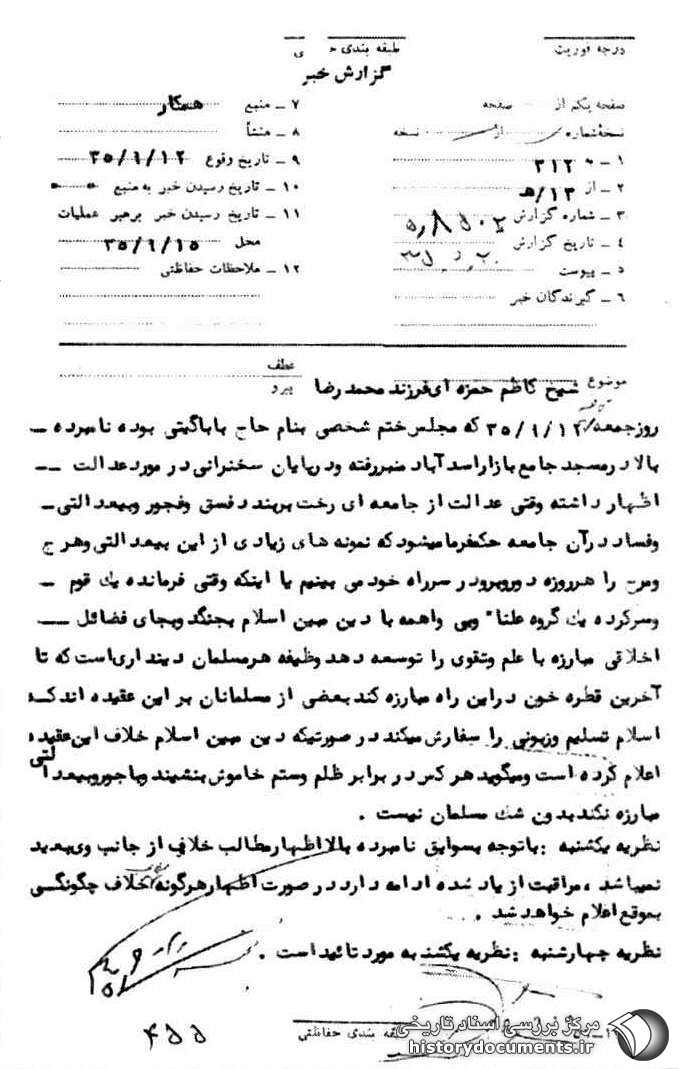 درجه فوریت
طبقه بندی ح
گزارش خبر
صفحه یکم از صفحه
نسخهٔ شماره از نسخه
۱ ـ به ۳۱۲
۲ ـ از ۱۳/هـ
۳ ـ شماره گزارش
۴ ـ تاریخ گزارش
۵ ـ پیوست
۶ ـ گیرندگان خبر
۷ ـ منبع همکار
۸ ـ منشأ
۹ ـ تاریخ وقوع ۳۵/۱/۱۲
۱۰ ـ تاریخ رسیدن خبر به منبع
۱۱ ـ تاریخ رسیدن خبر برهبر عملیات
محل ۳۵/۱/۱۵
۱۲ ـ ملاحظات حفاظتی
عطف
موضوع شیخ کاظم حمزه ای فرزند محمد رضا پیرو
روزجمعه ۳۵/۱/۱۲ که مجلس ختم شخصی بنام حاج باباگیتی بوده نامبرده ــ
بالا درمسجد جامع بازاراسدآباد منبررفته ودرپایان سخنرانی در مورد عدالت ــ
اظهار داشته وقتی عدالت از جامعه ای رخت بربندد فسق وفجور وبیعدالتی ــ
وفساد درآن جامعه حکمفرما میشود که نمونه های زیادی از این بیعدالتی وهرج
ومرج را هرروزه دوروبرودر سرراه خود می بینیم یا اینکه وقتی فرمانده یك قوم ــ
وسرکرده یك گروه علنا" وبی واهمه با دین مبین اسلام بجنگد وبجای فضائل ــ
اخلاقی مبارزه با علم وتقوی را توسعه دهد وظیفه هرمسلمان دینداری است که تا
آخرین قطره خون دراین راه مبارزه کند بعضی از مسلمانان بر این عقیده اند که
اسلام تسلیم وزبونی را سفارش میکند در صورتیکه دین مبین اسلام خلاف این عقیده
اعلام کرده است ومیگوید هرکس در برابر ظلم وستم خاموش بنشیند وباجوروبیعدالتی
مبارزه نکند بدون شك مسلمان نیست .
نظریه یکشنبه : باتوجه بسوابق نامبرده بالا اظهارمطالب خلاف از جانب وی بعید
نمیباشد ، مراقبت از یاد شده ادامه دارد در صورت اظهارهرگونه خلاف چگونگی
بموقع اعلام خواهد شد .
نظریه چهارشنبه : نظریه یکشنبه مورد تائید است .
طبقه بندی حفاظتی
۴۵۵
مرکز بررسی اسناد تاریخی
historydocuments.ir